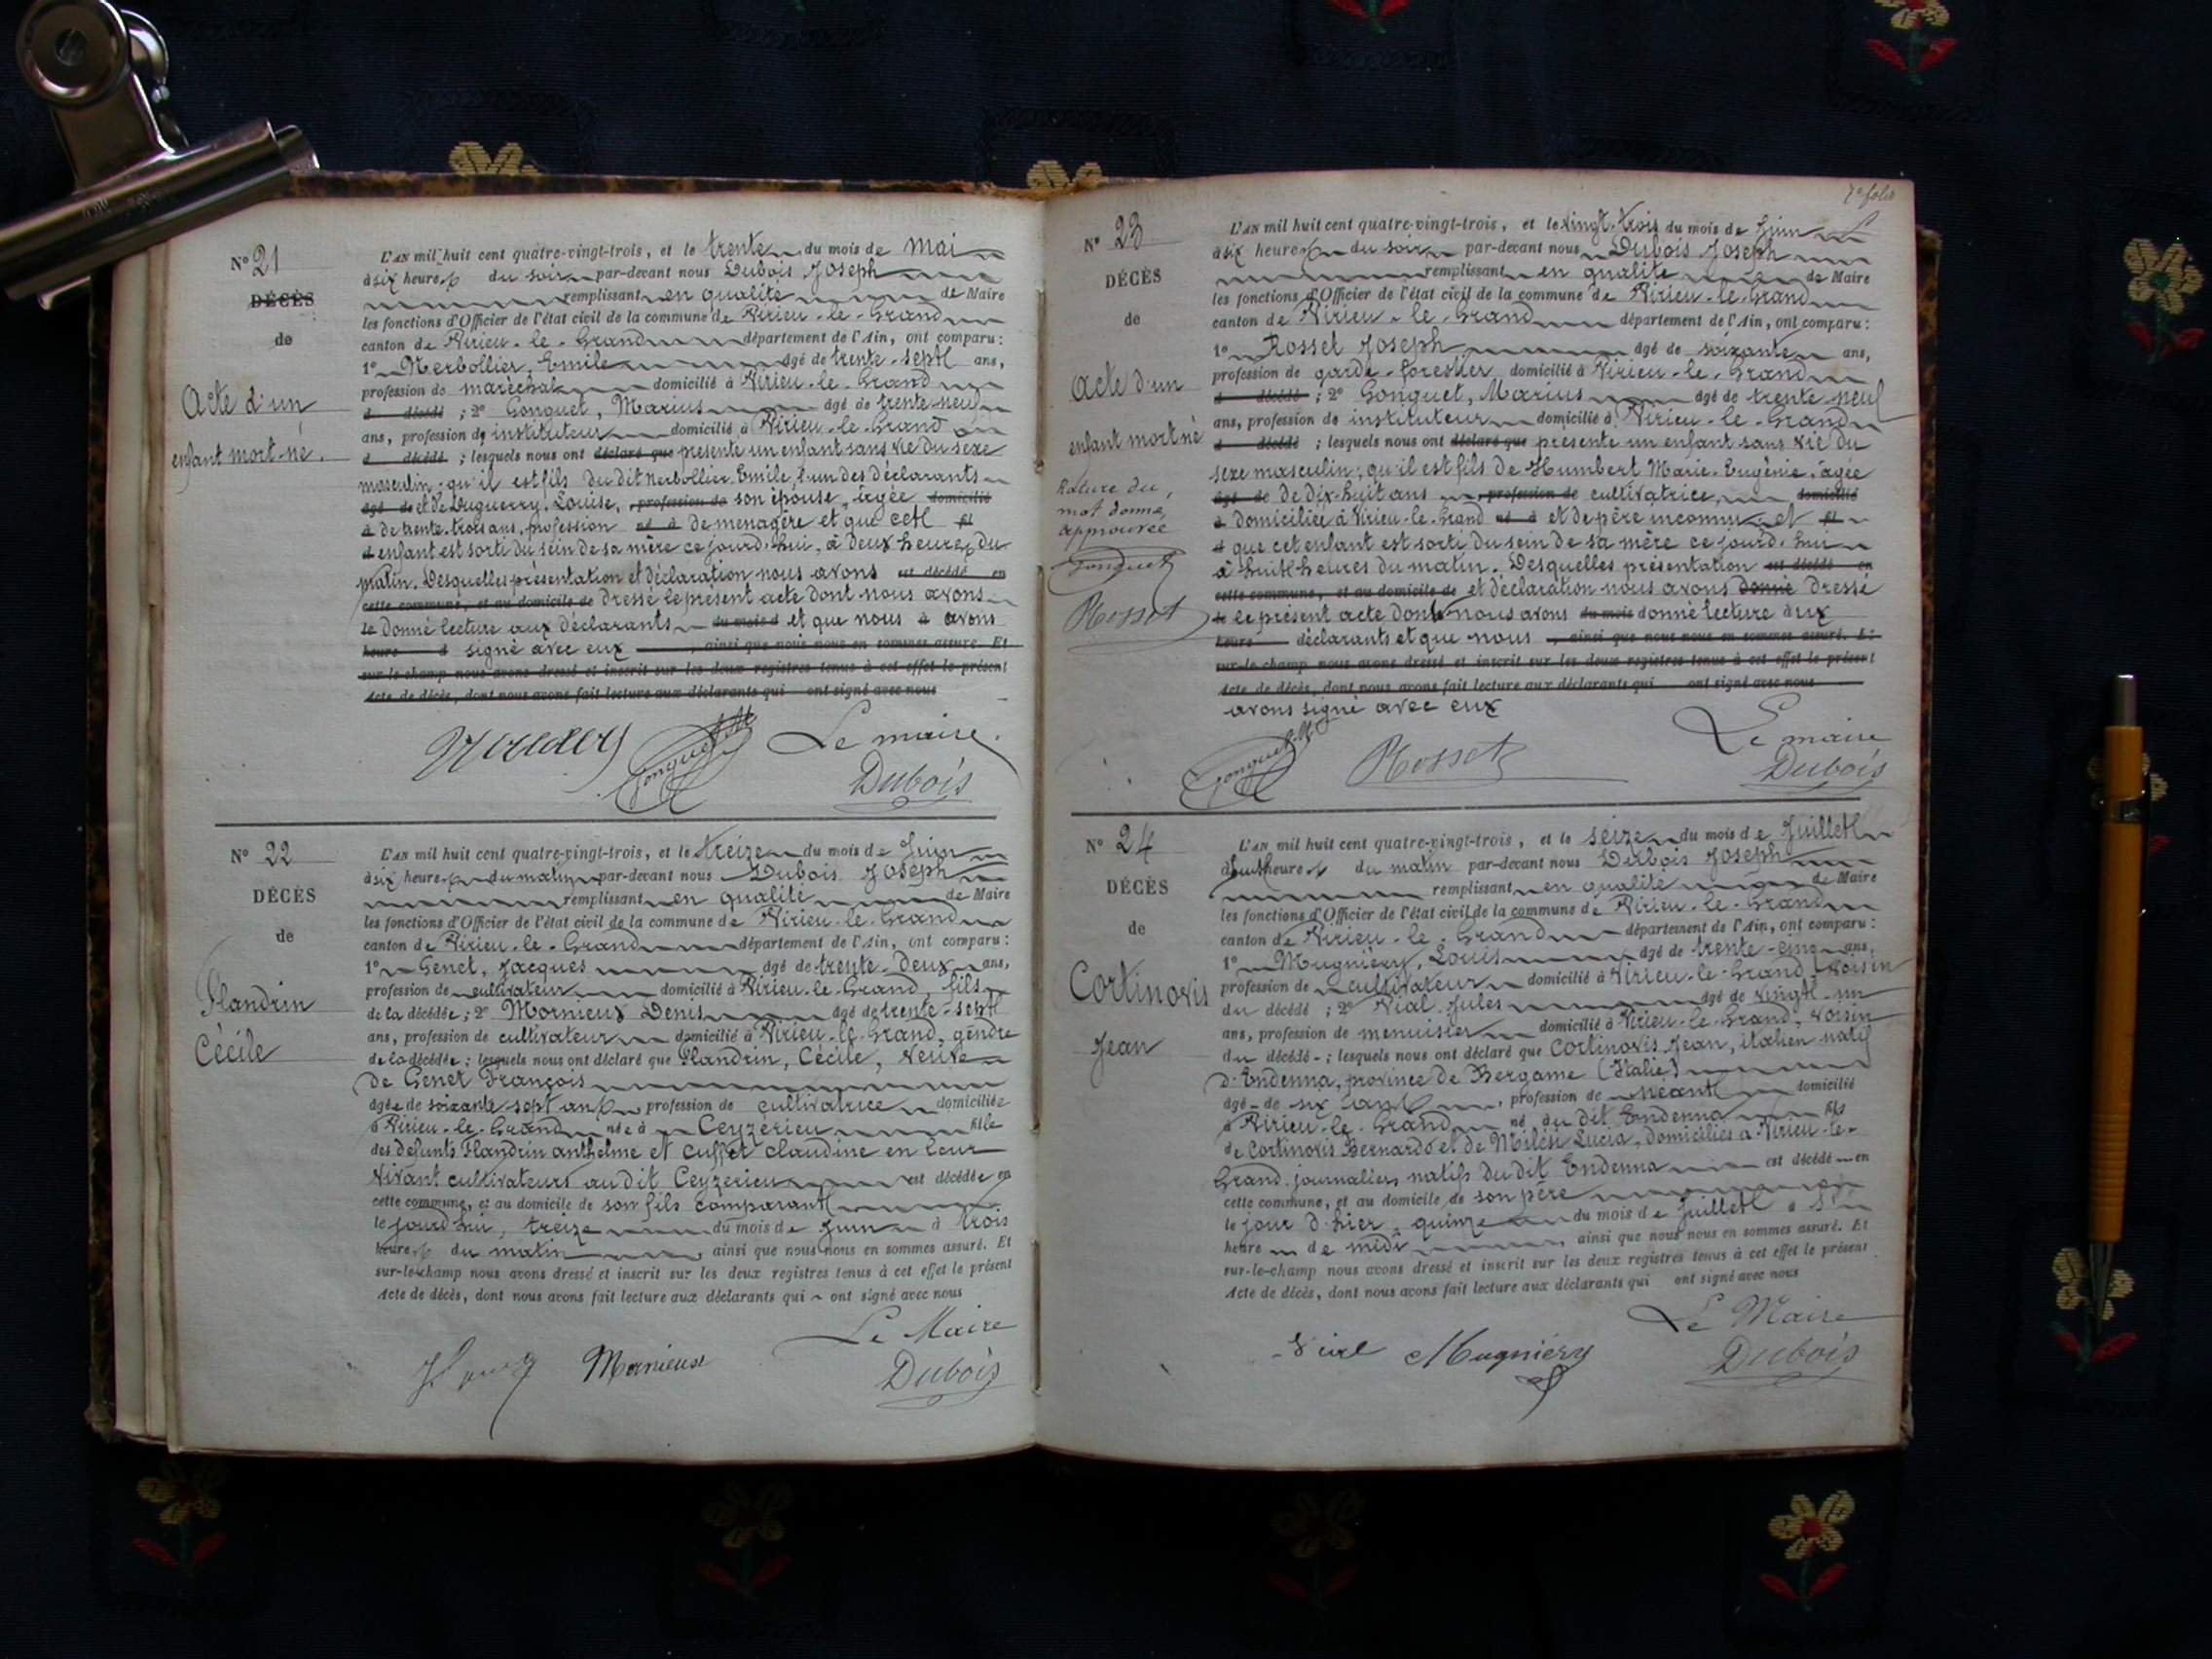 N° 21
DÉCÈS
de
Acte d'un
enfant mort-né.
L'AN mil huit cent quatre-vingt-trois, et le trente du mois de Mai
à six heures du soir par-devant nous Dubois Joseph
remplissant en qualité de Maire
les fonctions d'Officier de l'état civil de la commune de Virieu-le-Grand
canton de Virieu-le-Grand département de l'Ain, ont comparu:
1° Nerbollier, Emile âgé de trente-sept ans,
profession de maréchal domicilié à Virieu-le-Grand
d décédé ; 2° Gonguet, Marius âgé de trente-neuf
ans, profession de instituteur domicilié à Virieu-le-Grand
d décédé ; lesquels nous ont déclaré que présenté un enfant sans vie du sexe
masculin; qu'il est fils du dit Nerbollier Emile, l'un des déclarants
âgé de et de Duguerry, Louise, profession de son épouse, âgée domicilié
à de trente-trois ans, profession né à de ménagère et que cet fi
d enfant est sorti du sein de sa mère ce jourd'hui, à deux heures du
matin. Desquelles présentation et déclaration nous avons est décédé en
cette commune, et au domicile de dressé le présent acte dont nous avons
le donné lecture aux déclarants du mois d et que nous à avons
heure d signé avec eux , ainsi que nous nous en sommes assuré. Et
sur-le-champ nous avons dressé et inscrit sur les deux registres tenus à cet effet le présent
Acte de décès, dont nous avons fait lecture aux déclarants qui ont signé avec nous
Gonguet M
Le maire.
Dubois
N° 22
DÉCÈS
de
Flandrin
Cécile
L'AN mil huit cent quatre-vingt-trois, et le treize du mois de Juin
à six heures du matin par-devant nous Dubois Joseph
remplissant en qualité de Maire
les fonctions d'Officier de l'état civil de la commune de Virieu-le-Grand
canton de Virieu-le-Grand département de l'Ain, ont comparu:
1° Genet, Jacques âgé de trente-deux ans,
profession de cultivateur domicilié à Virieu-le-Grand, fils
de la décédée ; 2° Mornieux Denis âgé de trente-sept
ans, profession de cultivateur domicilié à Virieu-le-Grand, gendre
de la décédée ; lesquels nous ont déclaré que Flandrin, Cécile, veuve
de Genet François
âgée de soixante-sept ans profession de cultivatrice domiciliée
à Virieu-le-Grand née à Ceyzérieu fille
des défunts Flandrin anthelme et Cuffet claudine en leur
vivant cultivateurs au dit Ceyzérieu est décédée en
cette commune, et au domicile de son fils comparant
le jourd'hui, treize du mois de Juin à trois
heures du matin , ainsi que nous nous en sommes assuré. Et
sur-le-champ nous avons dressé et inscrit sur les deux registres tenus à cet effet le présent
Acte de décès, dont nous avons fait lecture aux déclarants qui ont signé avec nous
Mornieux
Le Maire
Dubois
7e folio
N° 23
DÉCÈS
de
Acte d'un
enfant mort né
Rature du
mot donné,
approuvée
Gonguet
Rosset
L'AN mil huit cent quatre-vingt-trois, et le vingt-trois du mois de Juin
à six heures du soir par-devant nous Dubois Joseph
remplissant en qualité de Maire
les fonctions d'Officier de l'état civil de la commune de Virieu-le-Grand
canton de Virieu-le-Grand département de l'Ain, ont comparu:
1° Rosset Joseph âgé de soixante ans,
profession de garde-forestier domicilié à Virieu-le-Grand
d décédé ; 2° Gonguet, Marius âgé de trente-neuf
ans, profession de instituteur domicilié à Virieu-le-Grand
d décédé ; lesquels nous ont déclaré que présenté un enfant sans vie du
sexe masculin; qu'il est fils de Humbert Marie-Eugénie, âgée
âgé de de dix-huit ans profession de cultivatrice, domicilié
à domiciliée à Virieu-le-Grand né à et de père inconnu et fi
d que cet enfant est sorti du sein de sa mère ce jourd'hui
à huit heures du matin. Desquelles présentation est décédé en
cette commune, et au domicile de et déclaration nous avons donné dressé
le le présent acte dont nous avons du mois donné lecture aux
heure déclarants et que nous , ainsi que nous nous en sommes assuré. Et
sur-le-champ nous avons dressé et inscrit sur les deux registres tenus à cet effet le présent
Acte de décès, dont nous avons fait lecture aux déclarants qui ont signé avec nous
avons signé avec eux
Gonguet M
Rosset
Le maire
Dubois
N° 24
DÉCÈS
de
Cortinovis
Jean
L'AN mil huit cent quatre-vingt-trois, et le seize du mois de Juillet
à huit heures du matin par-devant nous Dubois Joseph
remplissant en qualité de Maire
les fonctions d'Officier de l'état civil de la commune de Virieu-le-Grand
canton de Virieu-le-Grand département de l'Ain, ont comparu:
1° Mugniéry, Louis âgé de trente-cinq ans,
profession de cultivateur domicilié à Virieu-le-Grand, voisin
du décédé ; 2° Vial Jules âgé de vingt-un
ans, profession de menuisier domicilié à Virieu-le-Grand, voisin
du décédé ; lesquels nous ont déclaré que Cortinovis Jean, italien natif
d'Endenna, province de Bergame (Italie)
âgé de six ans , profession de néant domicilié
à Virieu-le-Grand né au dit Endenna fils
de Cortinovis Bernardo et de Milesi Lucia, domiciliés à Virieu-le-
Grand journaliers natifs du dit Endenna est décédé en
cette commune, et au domicile de son père
le jour d'hier, quinze du mois de Juillet à
heure de midi , ainsi que nous nous en sommes assuré. Et
sur-le-champ nous avons dressé et inscrit sur les deux registres tenus à cet effet le présent
Acte de décès, dont nous avons fait lecture aux déclarants qui ont signé avec nous
Vial
Mugniéry
Le Maire
Dubois